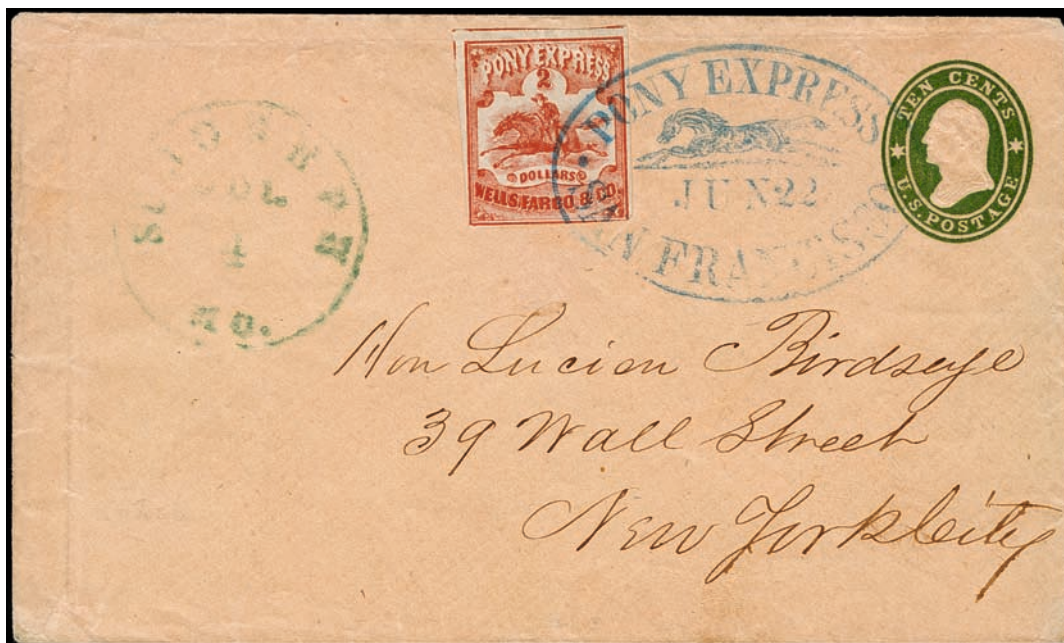 PONY EXPRESS
2
DOLLARS
WELLS, FARGO & CO.
PONY EXPRESS
JUN 22
SAN FRANCISCO
TEN CENTS
U.S. POSTAGE
MO.
Hon Lucien Birdseye
39 Wall Street
New York City